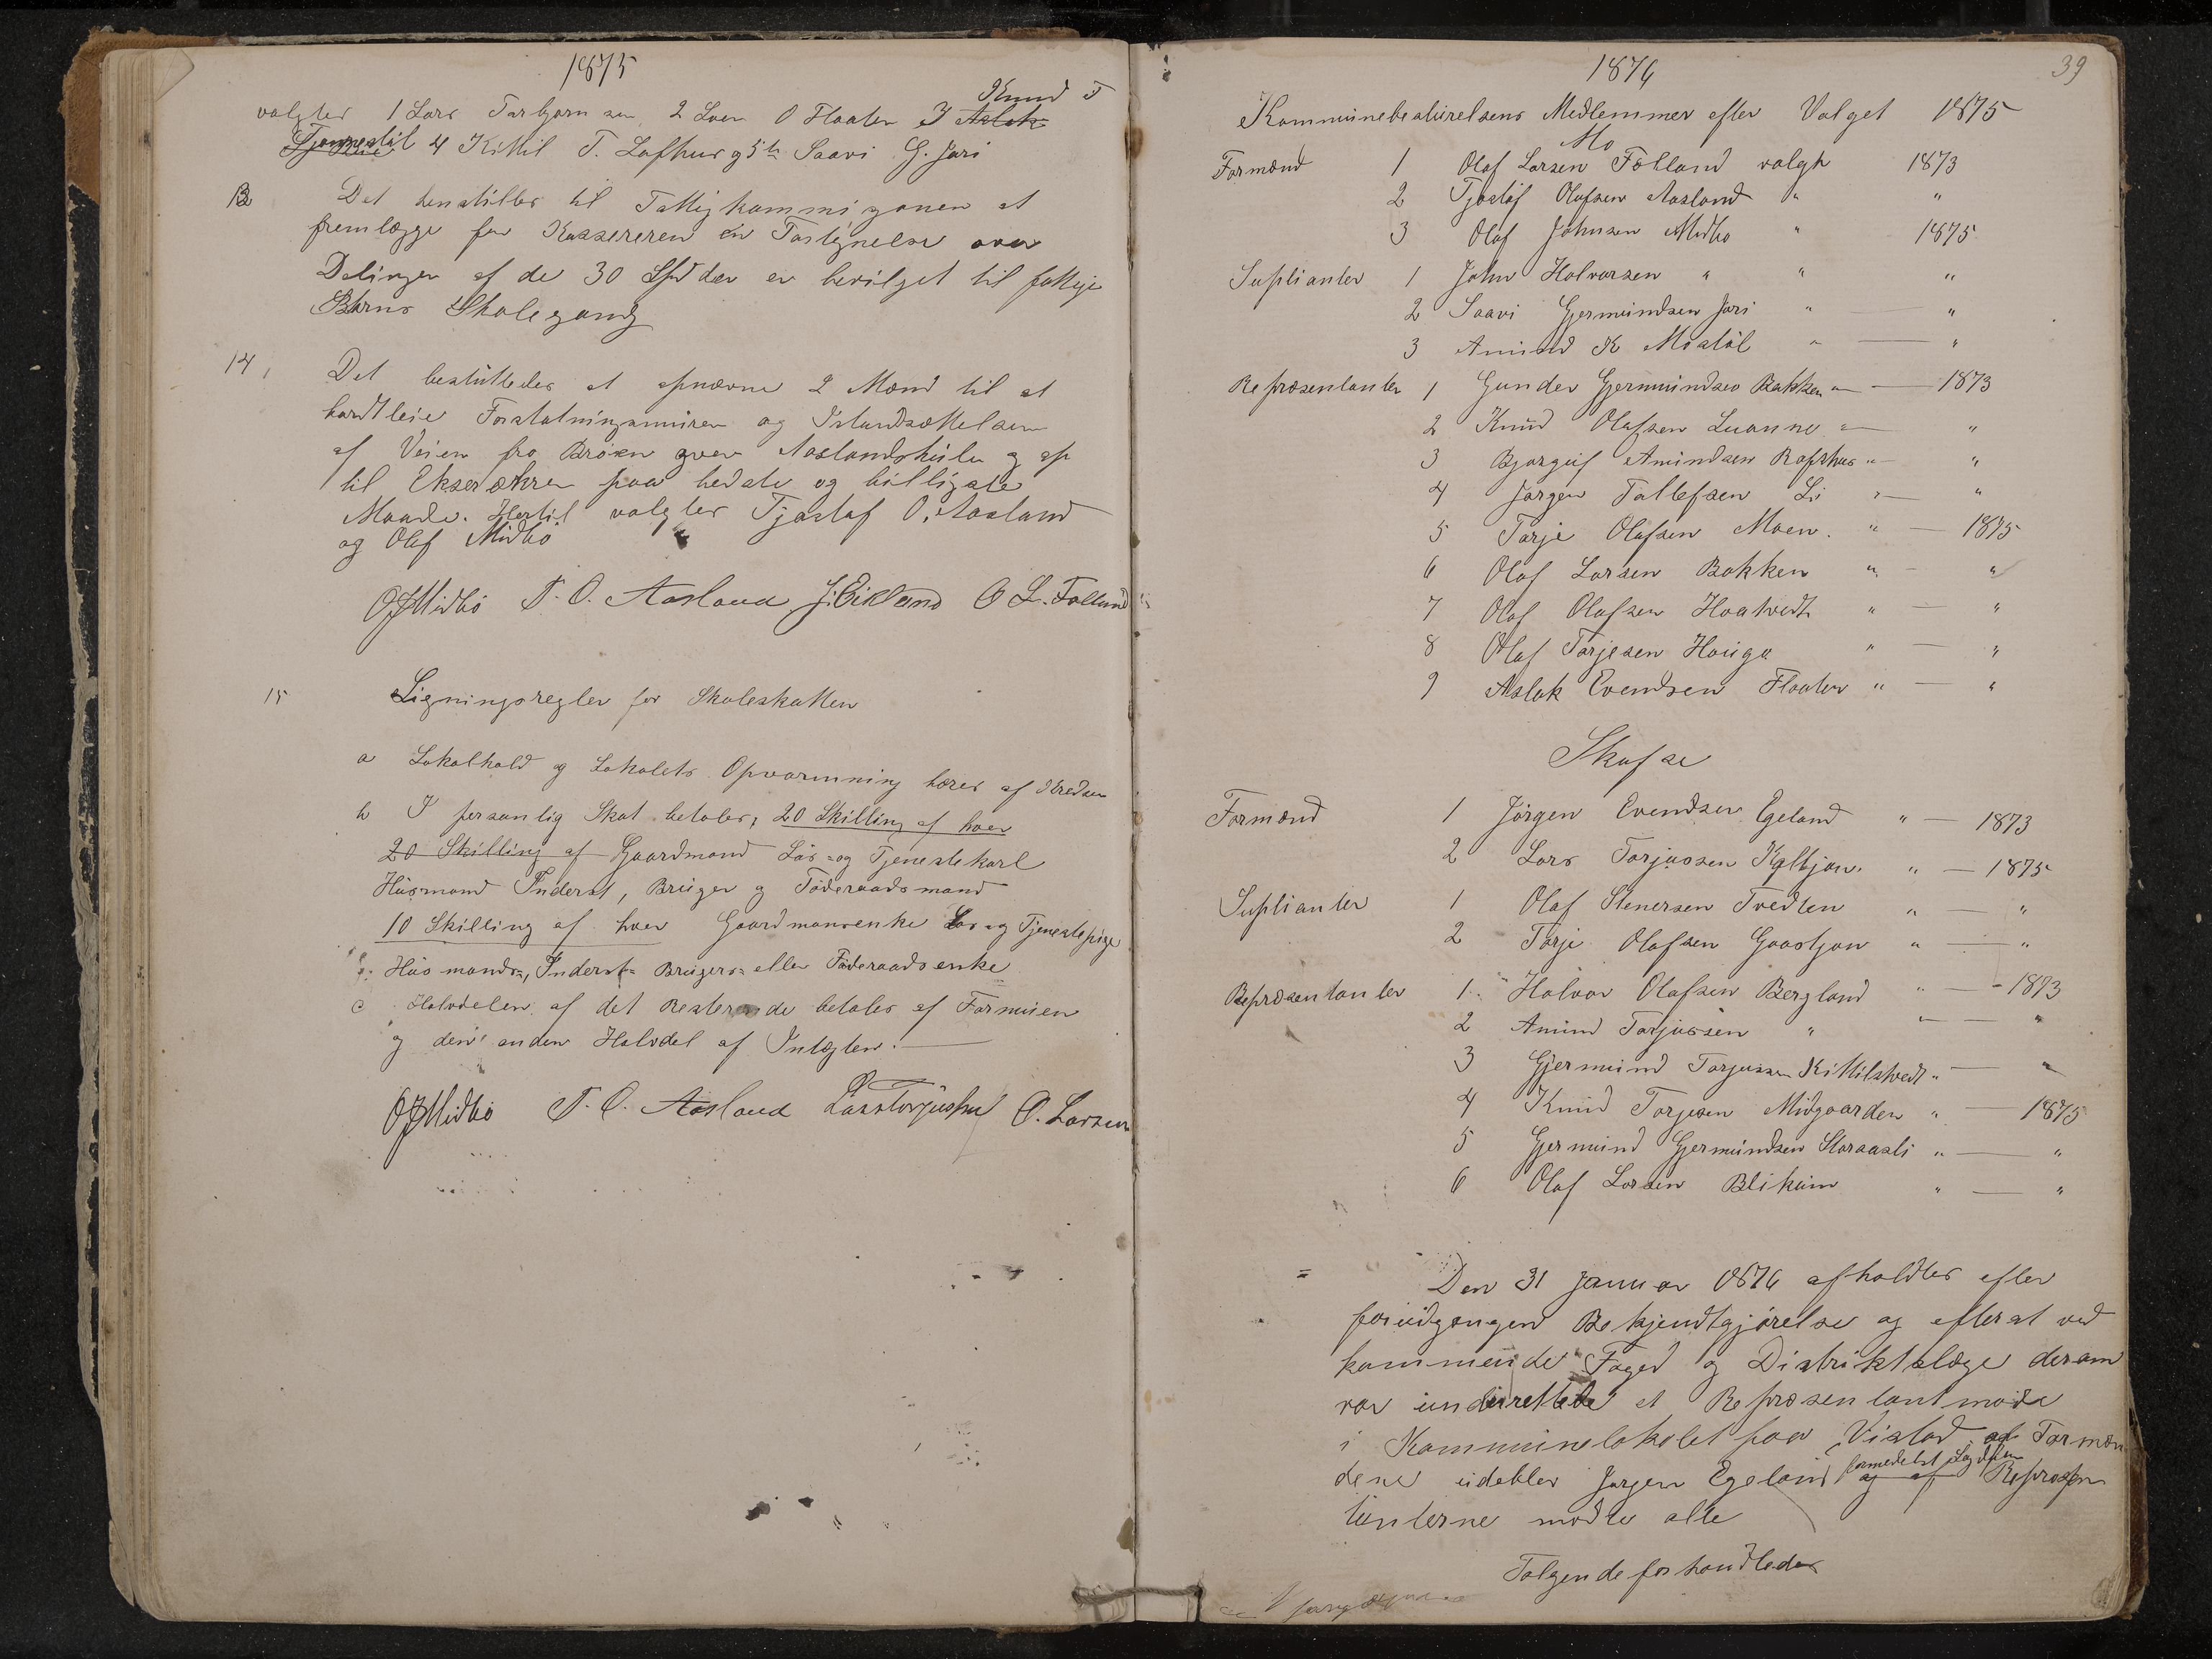 1875
valgtes 1 Lars Tarbjørnsen, 2 Lven O Flaaten 3 Aslak Knud T
Tjønnestøl 4 Kittil T. Lofthus og 5te Saavi G. Jøri
13 Det henstilles til Fattigkommisjonen at
fremlægge for Kassereren en Fortegnelse over
Delingen af de 30 Spd der er bevilget til fattige
Børns Skolegang
14, Det besluttedes at opnævne 2 Mænd til at
bortleie Forstøtningsmuren og Istandsættelsen
af Veien fra Broen over Aaslandskilen og op
til Ekserækren paa bedste og billigste
Maade. Hertil valgtes Tjøstaf O. Aasland
og Olef Midbø
OJMidbö T. O. Aasland J. Eikland O L. Folland
15 Ligningsregler for Skoleskatten
a Lokalhold og Lokalets Opvarmning bæres af Kredsen
b I personlig Skat betales; 20 Skilling af hver
20 Skilling af Gaardmand Løs- og Tjenestekarl
Húsmand Inderst, Brúger og Föderaadsmand
10 Skilling af hver Gaardmansenke Løs og Tjenestepige
Húsmands-, Inderst- Brúgers- eller Föderaadsenke
c Halvdelen af det Resterende betales af Formúen
og den anden Halvdel af Intægten.
OJMidbö T. O. Aasland Lars Torjússen O. Larsen
1876
39
Kommúnebestúrelsens Medlemmer efter Valget 1875
Mo
Formænd 1 Olaf Larsen Folland valgt 1873
2 Tjøstöf Olafsen Aasland " "
3 Olaf Johnsen Midbo " 1875
Suplianter 1 John Halvorsen " " "
2 Saavi Gjermúndsen Jøri " — "
3 Amúnd K Mostöl " — "
Repræsentanter 1 Gunder Gjermúndsen Bakken " — 1873
2 Knúd Olafsen Luanne " — "
3 Bjørgúf Amúndsen Rofshus " — "
4 Jørgen Tallefsen Li " — "
5 Tarje Olafsen Moen. " — 1875
6 Olaf Larsen Bakken " — "
7 Olaf Olafsen Hoatvedt " — "
8 Olaf Tarjesen Haúga " — "
9 Aslak Evendsen Flaaten " — "
Skafse
Formænd 1 Jörgen Evendsen Egeland " — 1873
2 Lars Torjussen Kyltjøn. " — 1875
Suplianter 1 Olaf Stenersen Tvedten " — "
2 Tarje Olafsen Gaastjøn " — "
Repræsentanter 1. Halvor Olafsen Bergland " — 1873
2 Amúnd Tarjussen " " — "
3 Gjermúnd Torjussen Kittilstvedt " — "
4 Knúd Torjesen Midgaarden " — 1875
5 Gjermúnd Gjermúndsen Storaasli " — "
6 Olaf Larsen Blikúm " — "
= Den 31 Januar 1876 afholdtes efter
forúdgangen Bekjendtgjörelse og efterat ved
kommende Foged og Distriktslæge derom
var únderrettede et Repræsentantmöde
i Kommúnelokalet paa Vistad af Formæn
dene údeblev Jørgen Egeland formedelst Sygdom og af Repræsen
tanterne mødte alle
Følgende forhandledes